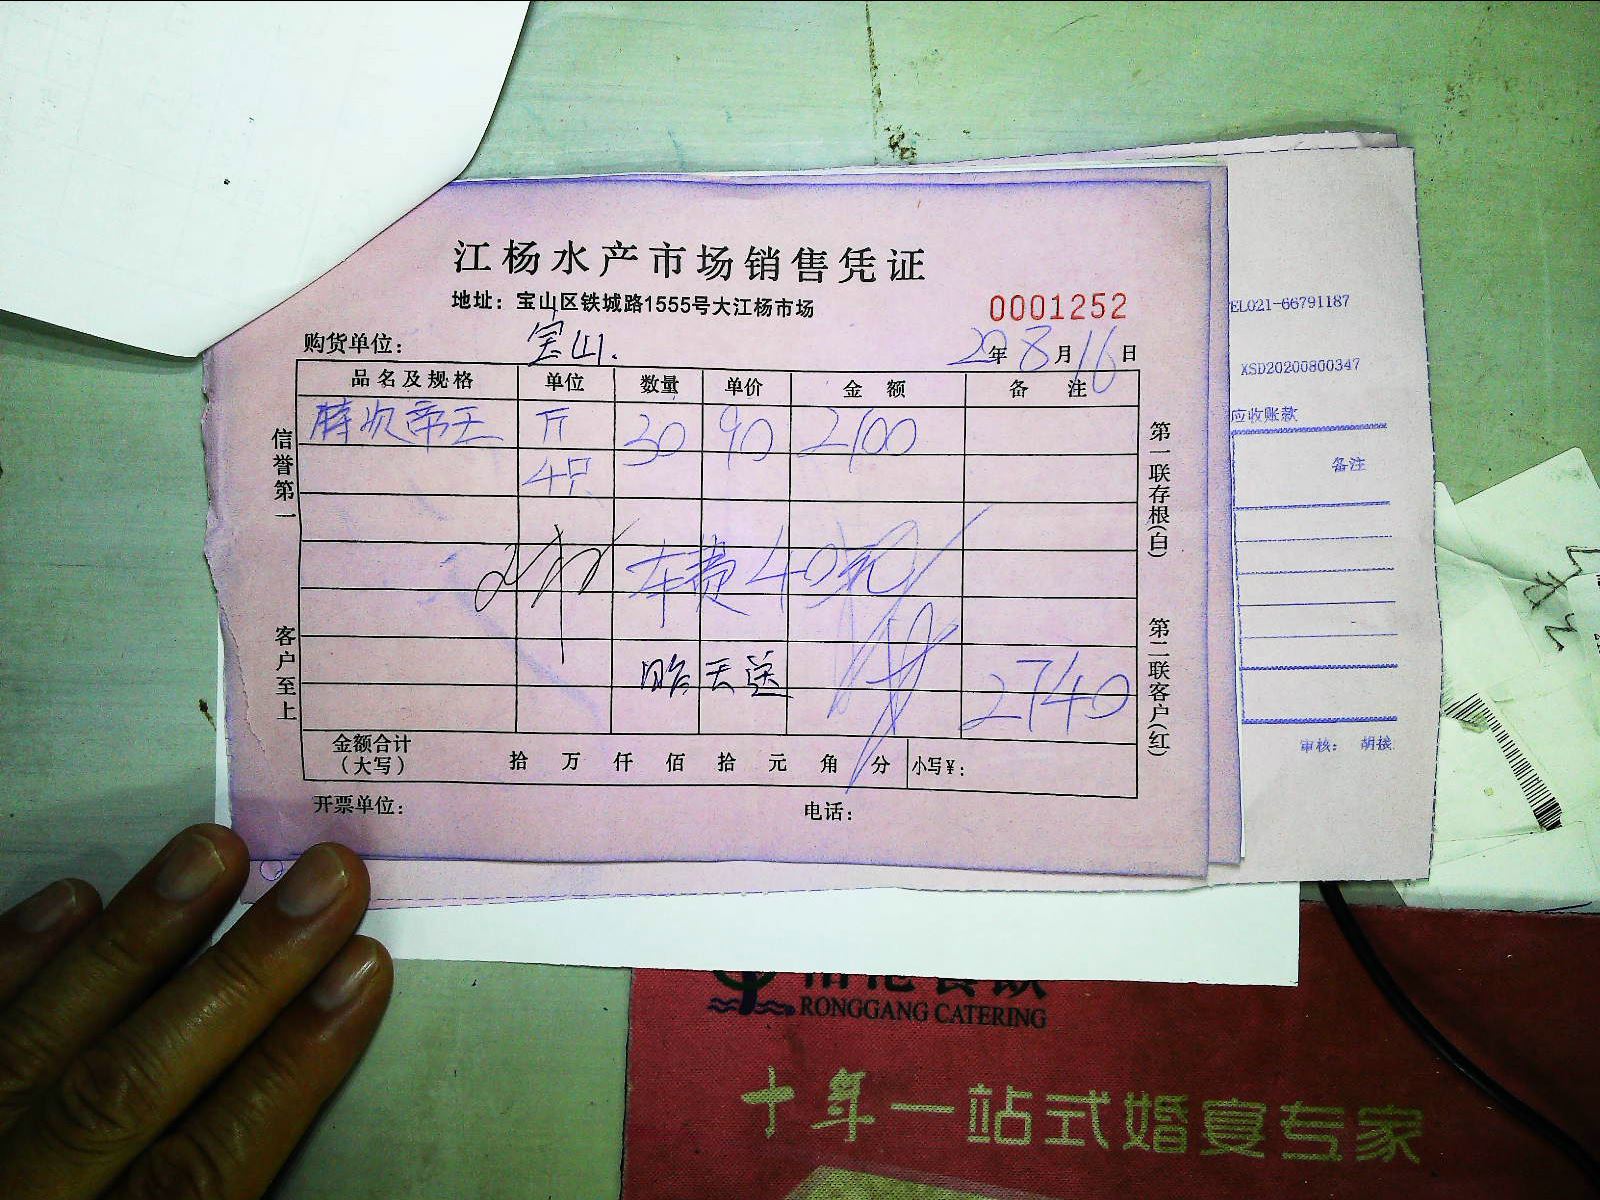 江杨水产市场销售凭证
地址：宝山区铁城路1555号大江杨市场
0001252
购货单位：宝山.
20年8月16日
品名及规格 单位 数量 单价 金额 备注
帝王 斤 30 90 2100
4只
车费40元
昨天送
2740
金额合计（大写） 拾 万 仟 佰 拾 元 角 分 小写¥：
开票单位： 电话：
信誉第一 客户至上
第一联存根(白) 第二联客户(红)
EL021-66791187
XSD20200800347
应收账款
备注
审核：
RONGGANG CATERING
十年一站式婚宴专家